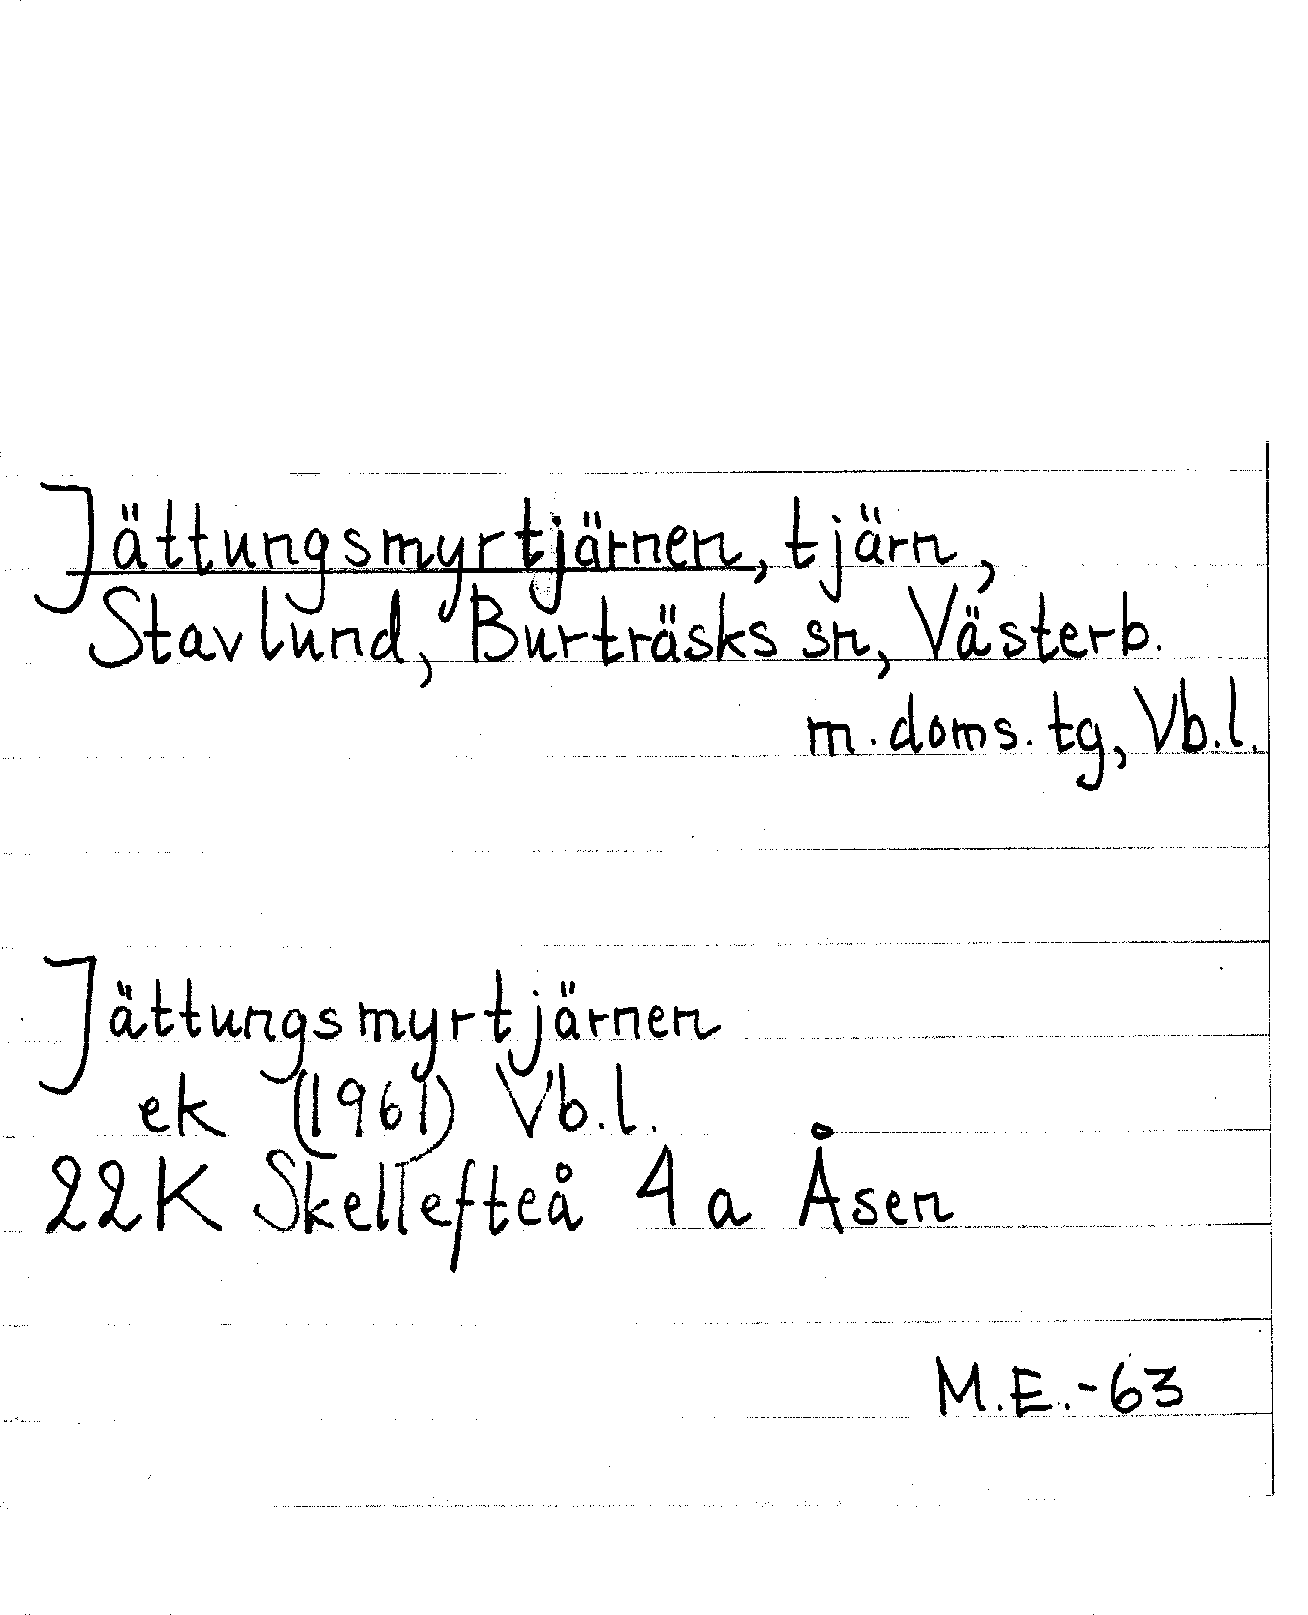 Jättungsmyrtjärnen, tjärn,
Stavlund, Burträsks sn, Västerb.
m. doms. tg, Vb.l.
Jättungsmyrtjärnen
ek (1961) Vb.l.
22K Skellefteå 4a Åsen
M.E.-63